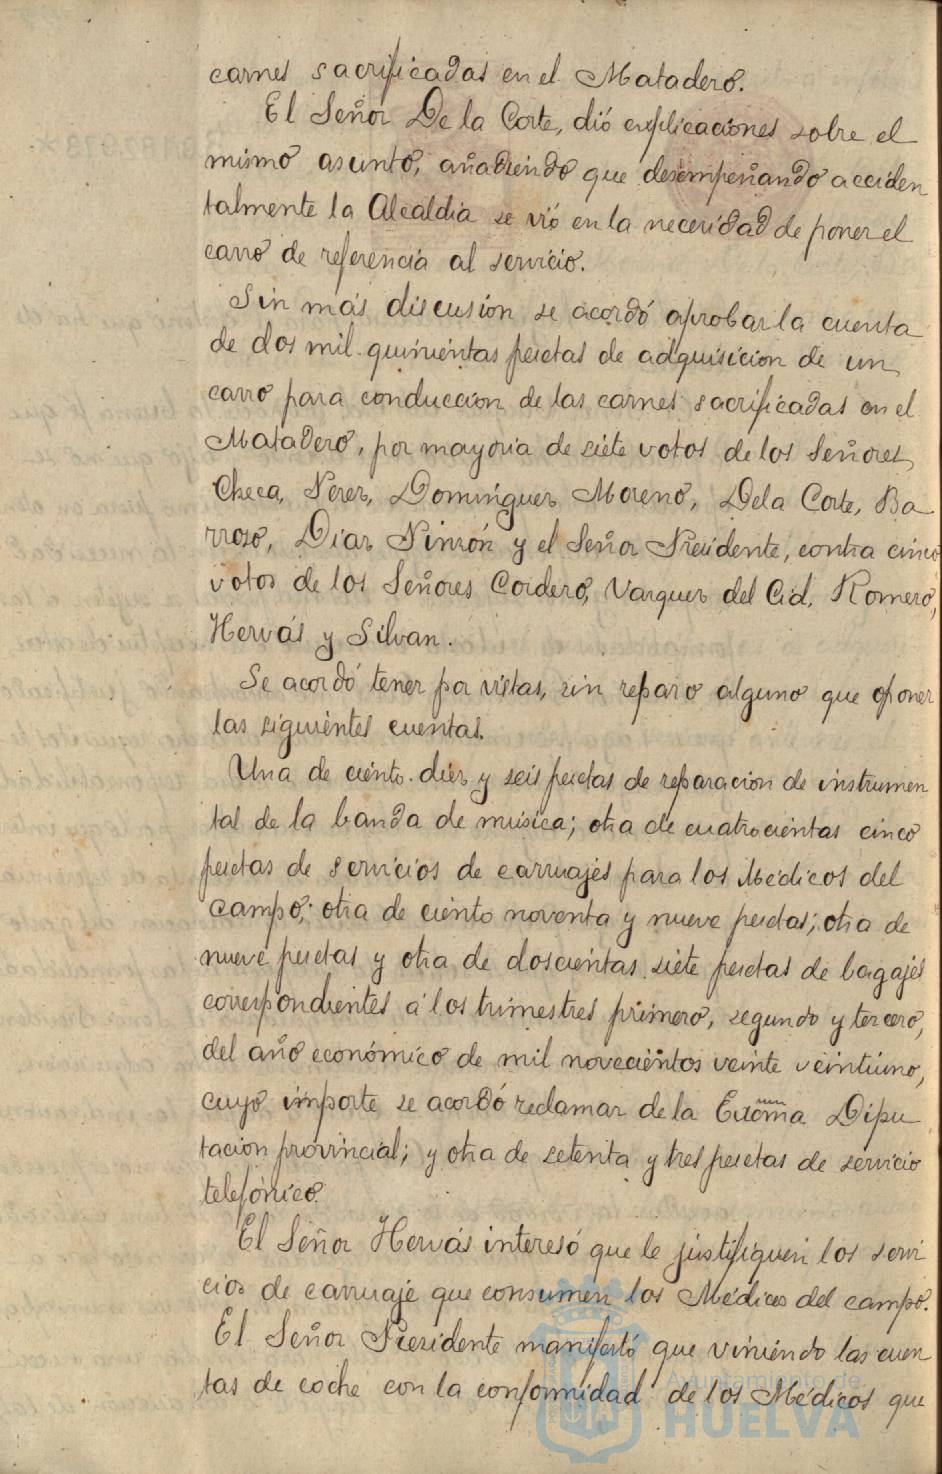 carnes sacrificadas en el Matadero.
El Señor De la Corte, dió explicaciones sobre el
mismo asunto, añadiendo que desempeñando acciden
talmente la Alcaldia se vió en la necesidad de poner el
carro de referencia al servicio.
Sin más discusión se acordó aprobar la cuenta
de dos mil quinientas pesetas de adquisicion de un
carro para conduccion de las carnes sacrificadas en el
Matadero, por mayoria de siete votos de los Señores
Checa, Perez, Dominguez Moreno, De la Corte, Ba
rroso, Diaz Pinzón y el Señor Presidente, contra cinco
votos de los Señores Cordero, Vazquez del Cid, Romero,
Hervás y Silvan.
Se acordó tener por vistas, sin reparo alguno que oponer
las siguientes cuentas.
Una de ciento diez y seis pesetas de reparacion de instrumen
tal de la banda de música; otra de cuatrocientas cinco
pesetas de servicios de carruajes para los Médicos del
campo; otra de ciento noventa y nueve pesetas; otra de
nueve pesetas y otra de doscientas siete pesetas de bagajes
correspondientes á los trimestres primero, segundo y tercero,
del año económico de mil novecientos veinte veintiuno,
cuyo importe se acordó reclamar de la Excma Dipu
tacion provincial; y otra de setenta y tres pesetas de servicio
telefónico.
El Señor Hervás interesó que le justifiquen los servi
cios de carruaje que consumen los Médicos del campo.
El Señor Presidente manifestó que viniendo las cuen
tas de coche con la conformidad de los Médicos que
Ayuntamiento de
HUELVA